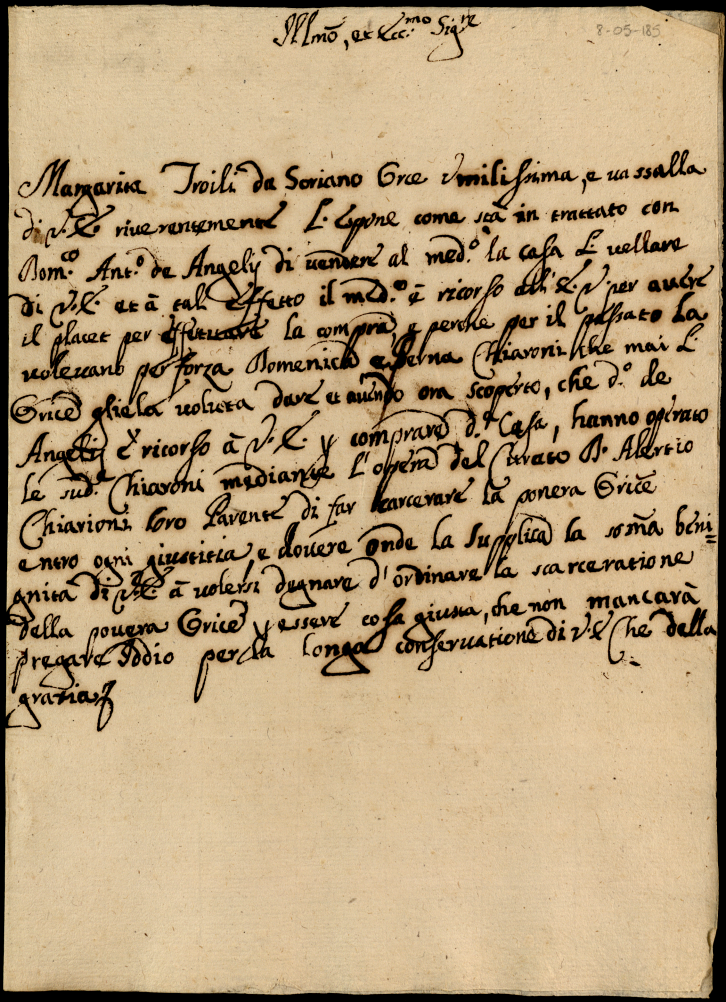 Illmō, et Ecc.mo Sig.re
8-05-185
Margarita Troili da Soriano Orce Umilissima, e vassalla
di V. E. riverentemente L'espone come stà in trattato con
Dom.co Ant.o de Angelij di vendere al med.o la casa
di V. E. et à tal' effetto il med.o è ricorso all' E. V per avere
il placet per effettuare la compra, e perche per il passato la
volevano per forza Domenica, e Chiaroni che mai L'
Orice gliela voluta dare et avendo ora scoperto, che d.o de
Angelij è ricorso à V. E. p comprare d.a Casa, hanno operato
le sud.e Chiaroni mediante l'opera del Curato D. Alertio
Chiarioni loro Parente di far carcerare la povera Orice
entro ogni giustitia, e dovere onde la supplica la soma beni=
gnità di V. E. à volersi degnare d'ordinare la scarceratione
della povera Orice p essere cosa giusta, che non mancarà
pregare Iddio per la longa conservatione di V. E. Che della
gratia